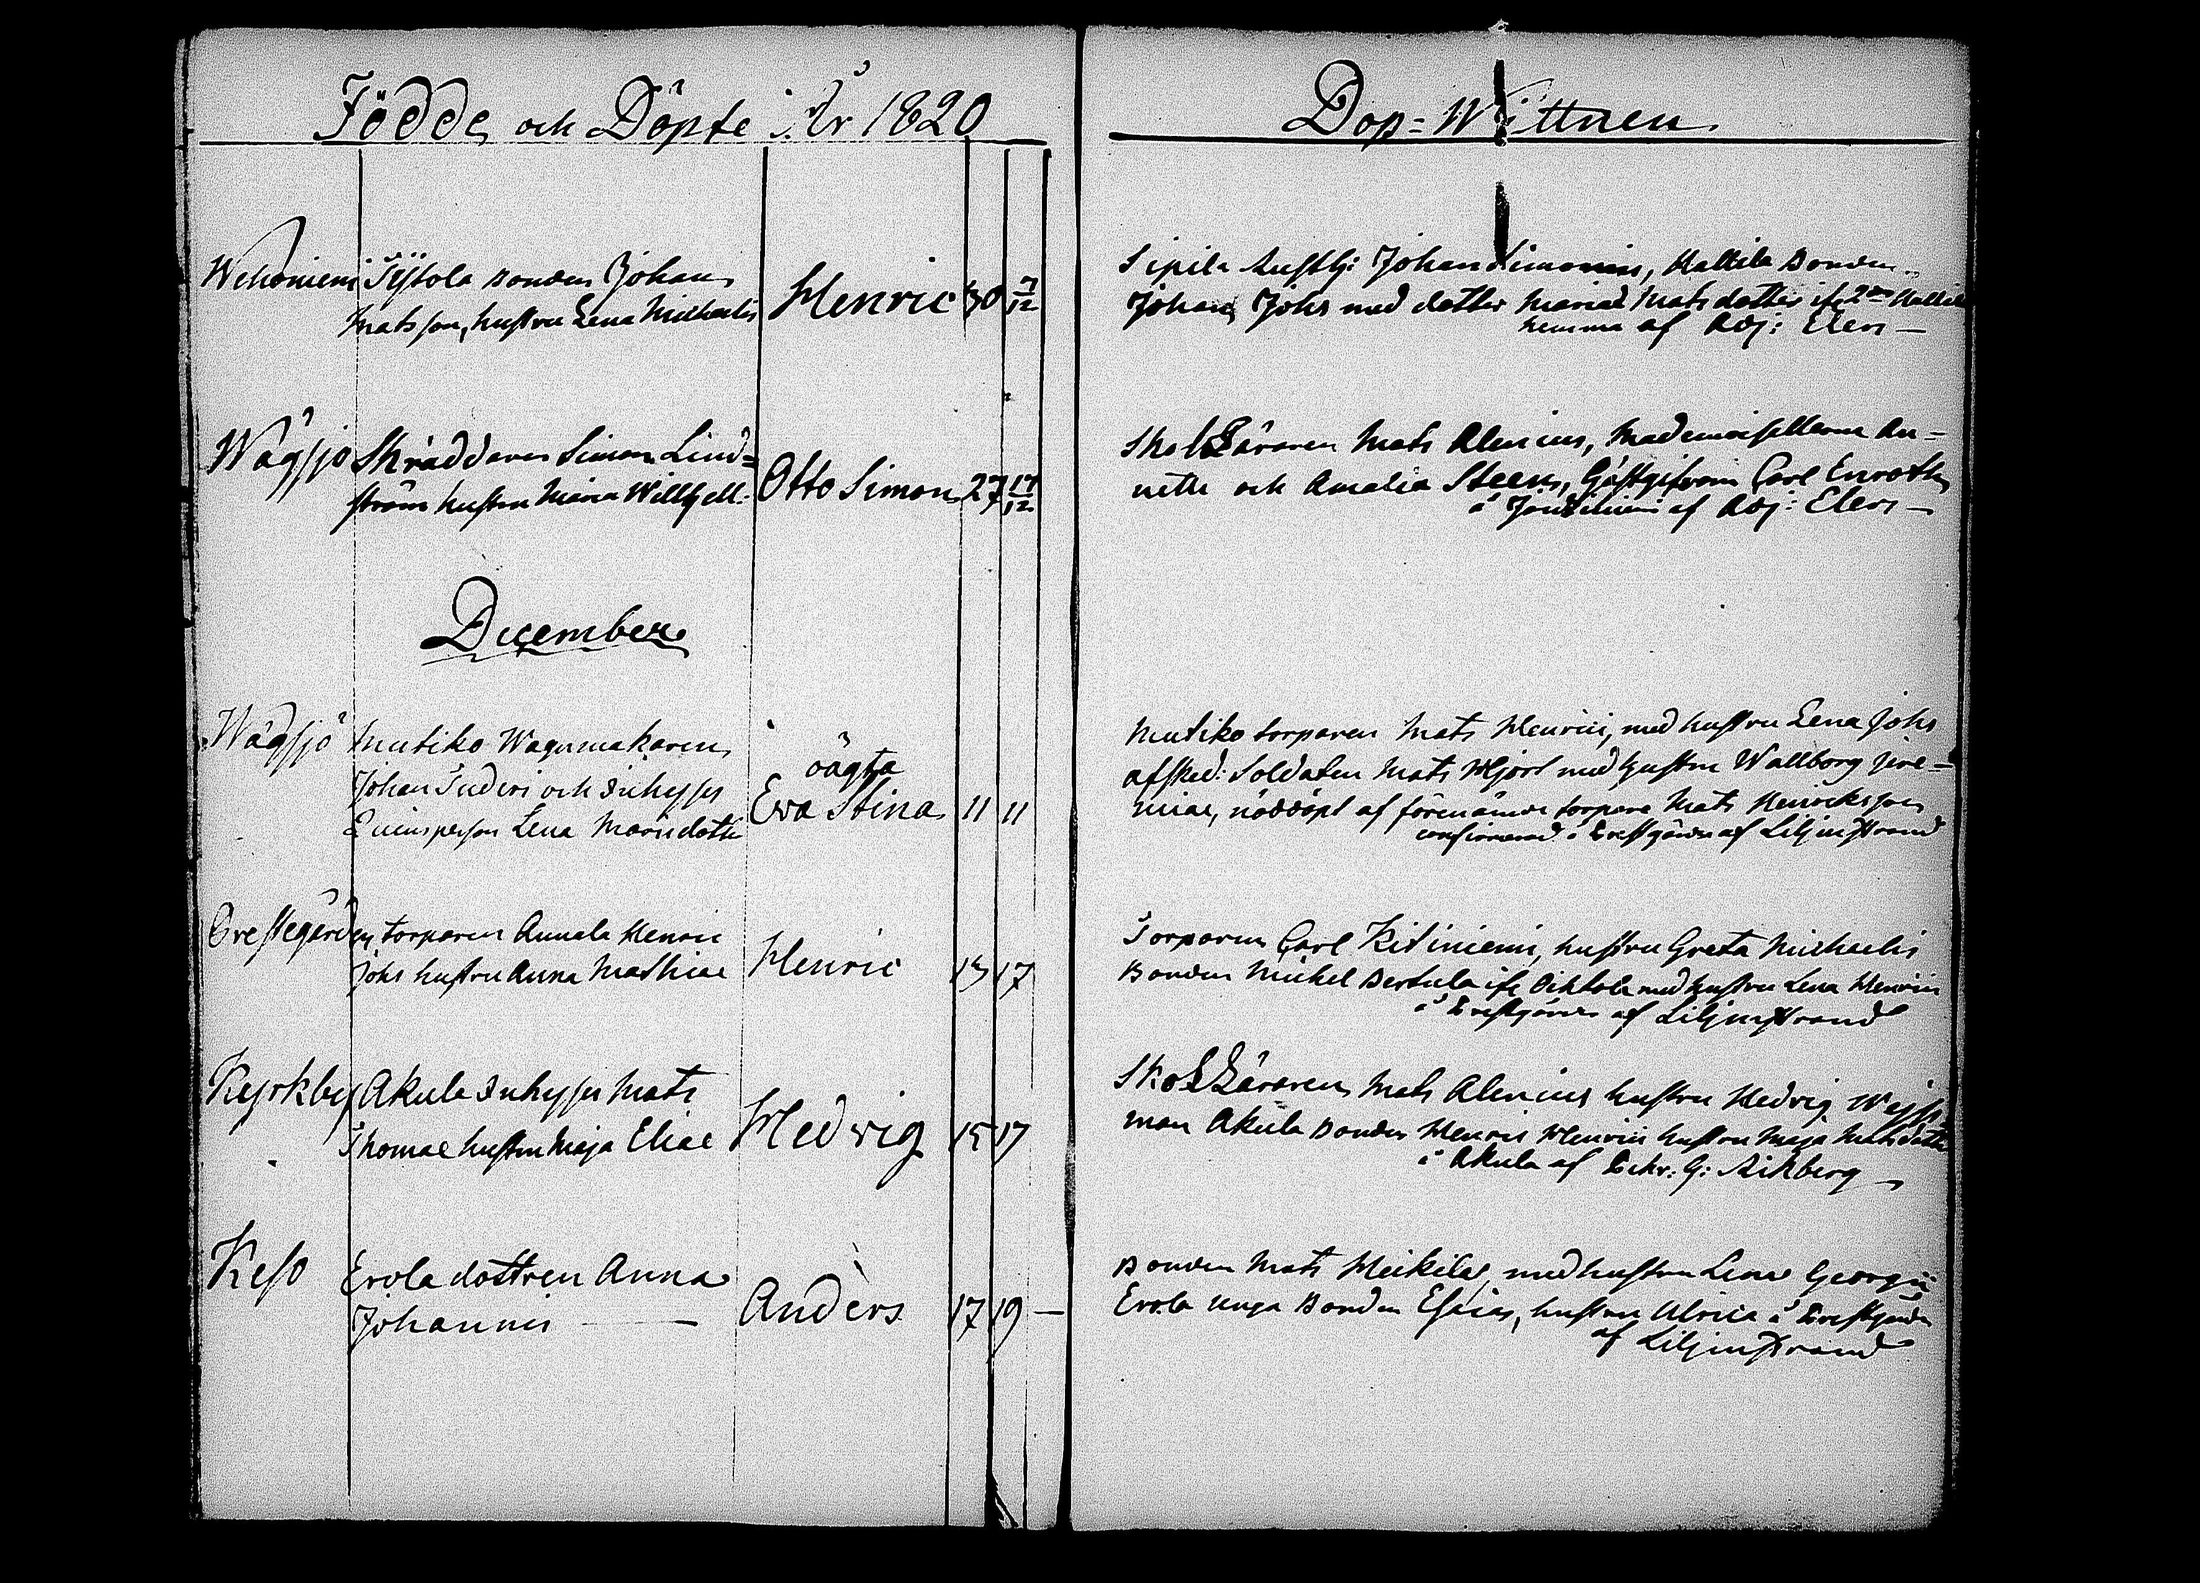 Födde och Döpte i År 1820
Dop-Wittnen
Wehoniemi Sÿstola Bonden Johan
Matsson, hustru Lena Michaelis
Henric 30 7/12
Sipila Johan Simonis, Mattila Bonden
Johan Johs med dotter Maria Mats dotter ifr Mattila
hemma af Adj: Elers —
Wågsjö Skräddaren Simon Lind=
ström hustru Maria
Otto Simon 27 17/12
SkolLäraren Mats Alenius, Mademoisellerne An=
nette och Amalia Steen, Gästgifvaren Carl Enroth
å af Adj: Elers —
December
Wågsjö Mutiko Wagnmakaren
Johan och Inhyses
Qvinsperson Lena
oägta
Eva Stina 11 11
Mutiko torparen Mats Henrici, med hustru Lena Johs
afsked: Soldaten Mats Hjort med hustru Wallborg Jere=
miae, nöddöpt af förenämde torpare Mats Henricksson
confirmerad i Prestgården af Liljenstrand
Prestegården torparen Annala Henric
Johs hustru Anna Mathiae
Henric 13 17
Torparen Carl Kitiniemi, hustru Greta Michaelis
Bonden Michel Pertula ifr med hustru Lena Henrici
i Prestgården af Liljenstrand
Kyrkby Akula Inhyses Mats
Thomae hustru Maja Eliae
Hedvig 15 17
SkolLäraren Mats Alenius hustru Hedvig
man Akula Bonden Henric Henrici hustru Maja Matsdotter
i Akula af G: Aikberg —
Keso Erola dottren Anna
Johannis —
Anders 17 19 —
Bonden Mats Heikila, med hustru Lena Georgii
Erola unga Bonden Esaias, hustru Ulrica i Prestgården
af Liljenstrand